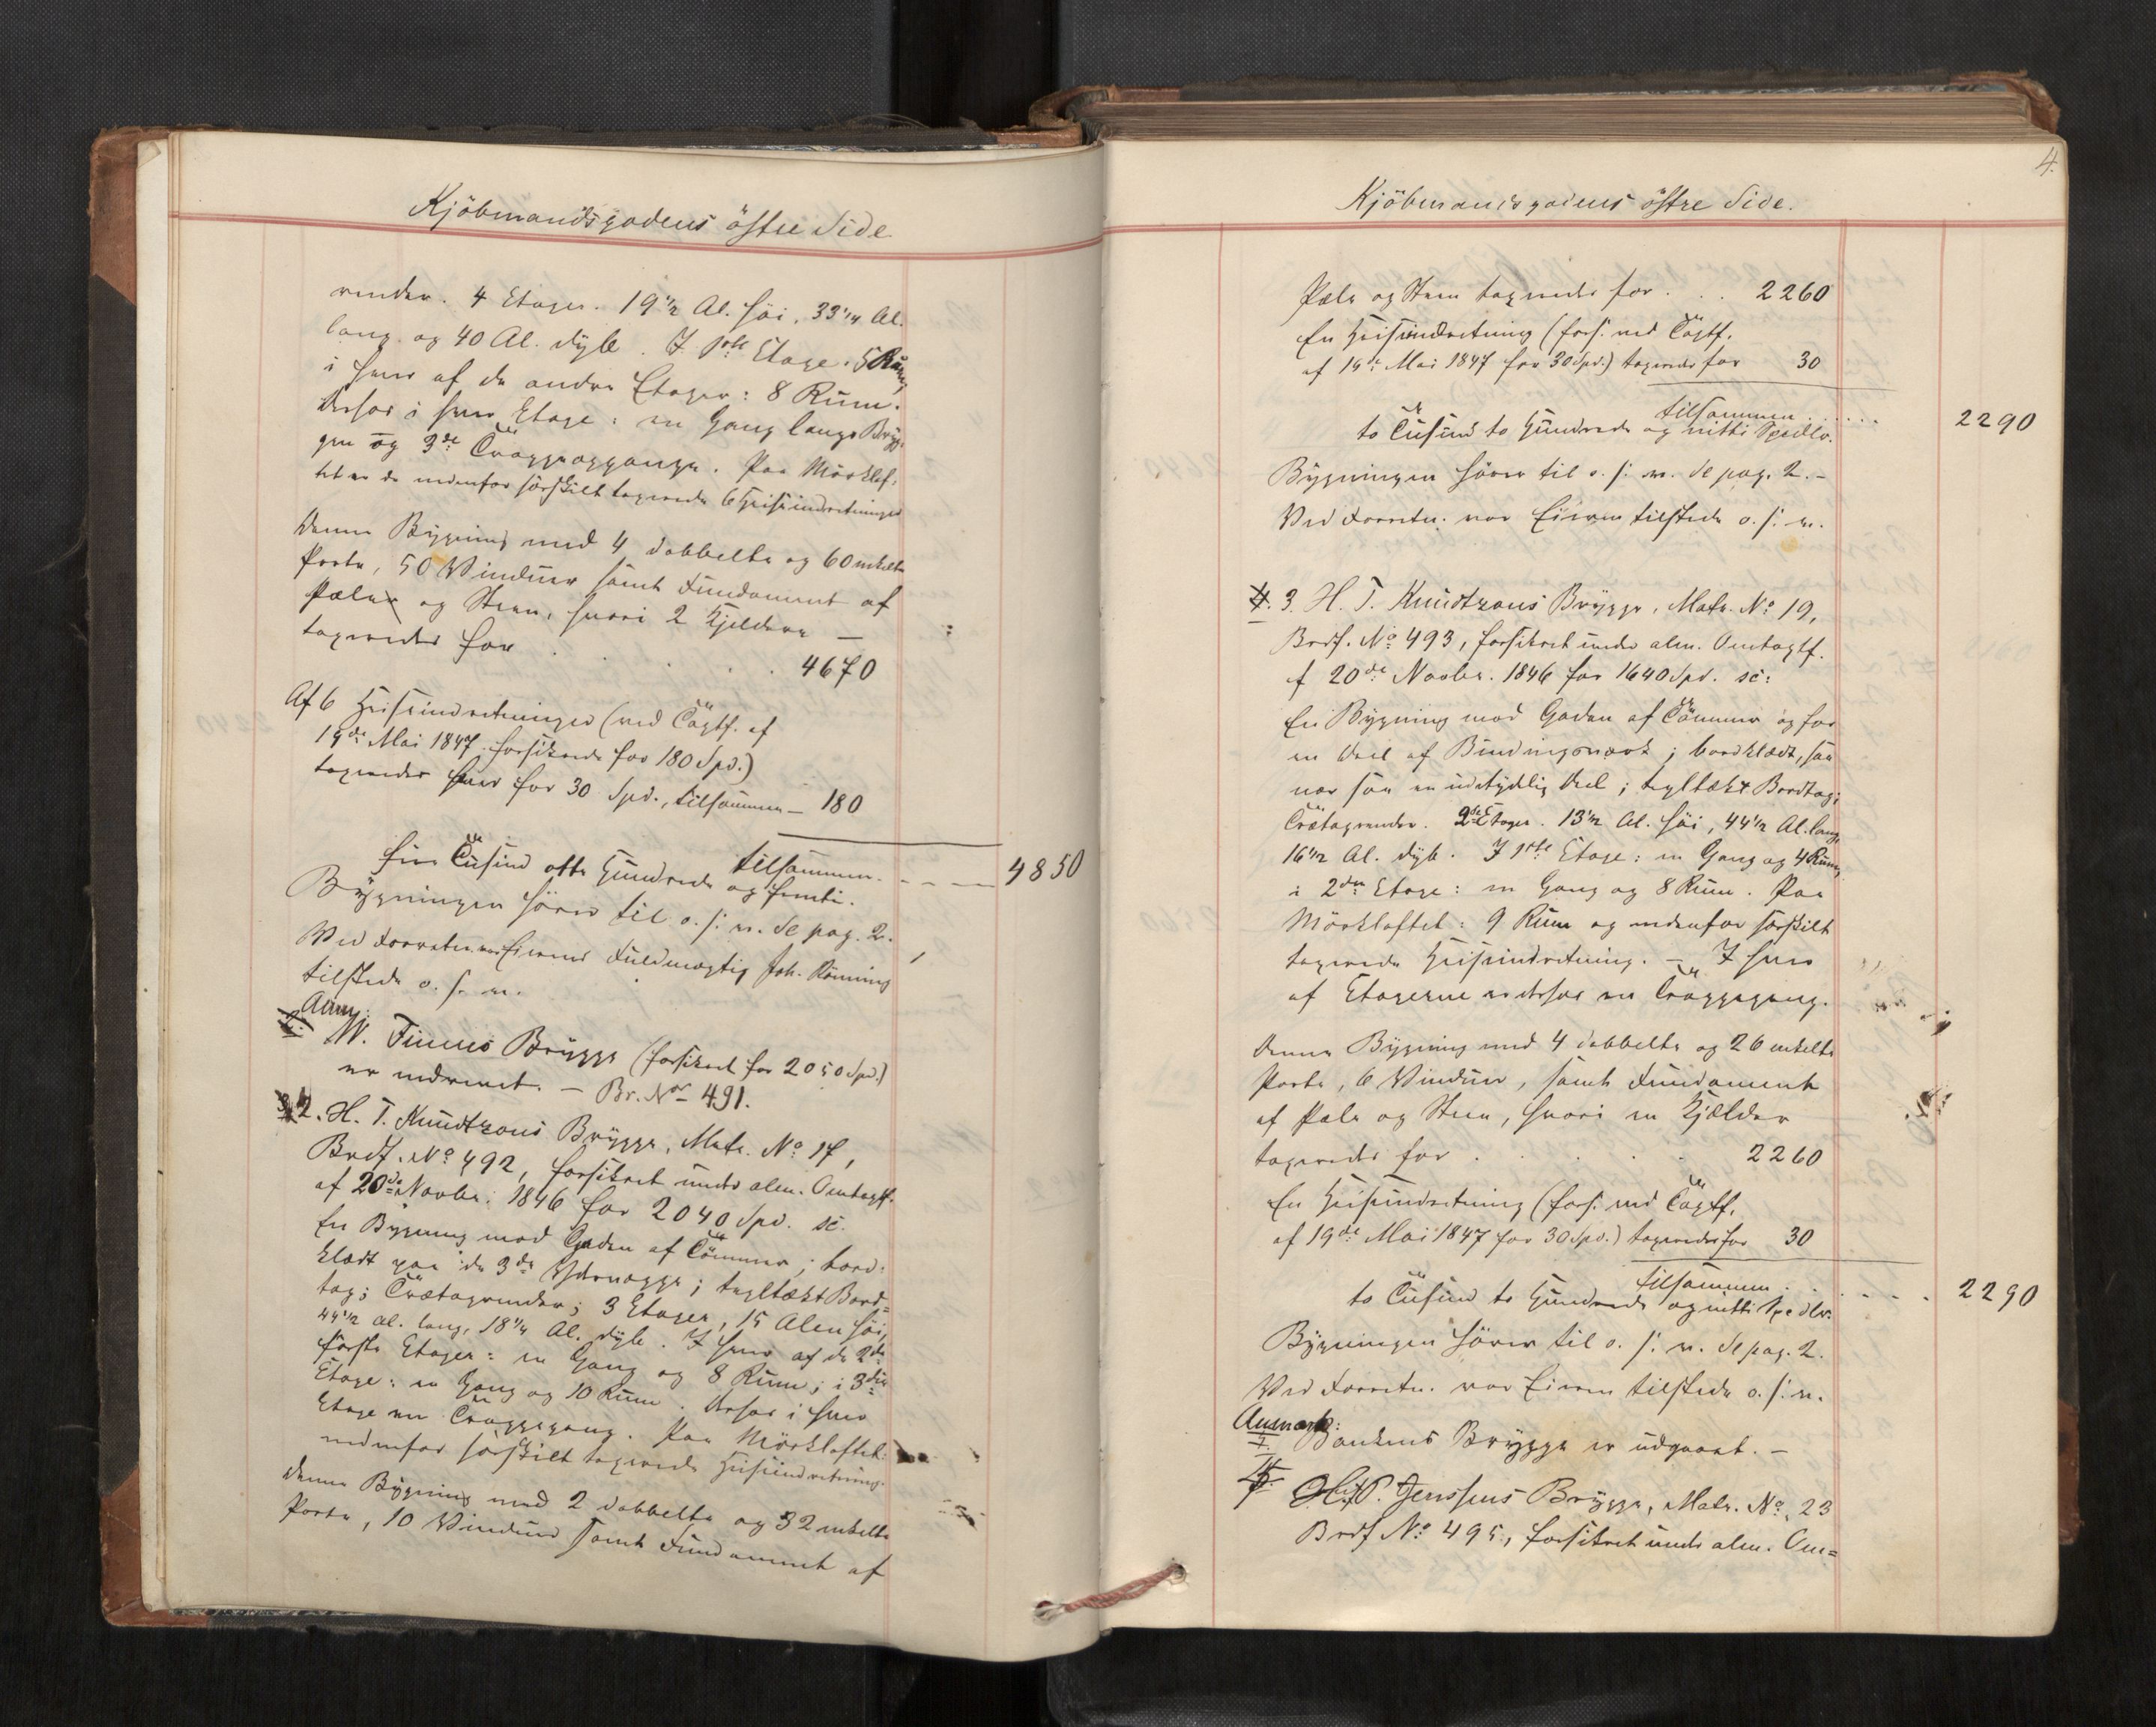 Kjöbmandsgadens östre Side
render. 4 Etager. 19 1/2 Al. höi, 33 1/4 Al.
lang og 40 Al. dyb. I 1ste Etage: 5 Rum,
i hver af de andre Etager: 8 Rum.
Derhos i hver Etage: en Gang langs Bryg-
gen og 3de Trappeopgange. Paa Mörklof-
tet er de nedenfor särskilt taxerede 6 Heiseindretninger
Denne Bygning med 4 dobbelte og 60 enkelte
Porte, 50 Vinduer samt Fundament af
Pæle og Steen, hvori 2 Kjeldere —
taxeredes for . . . . . 4670
Af 6 Heiseindretninger (ved Taxtf. af
19de Mai 1847 forsikrede for 180 Spd.)
taxeredes hver for 30 Spd., tilsammen — 180
tilsammen - - - - 4850
fire Tusind otte Hundrede og femti.
Bygningen hörer til o. s. v. Se pag. 2.
Ved Forretn. var Eierens Fuldmægtig Joh. Rönning
tilstede o. s. v.
Anm:
2. W. Finnes Brygge (forsikret for 2050 Spd.)
er nedrevet. — Br. No 491.
2. H. T. Knudtzons Brygge, Matr. No 17,
Brdf. No 492, forsikret under alm. Omtaxtf.
af 20de Novbr. 1846 for 2040 Spd. sc:
En Bygning mod Gaden af Tömmer; bord-
klædt paa de 3de Ydervægge; tegltækt Bord=
tag; Trætagrender; 3 Etager, 15 Alen höi,
44 1/2 Al. lang, 18 1/4 Al. dyb. I hver af de 2de
förste Etager: en Gang og 8 Rum; i 3die
Etage: en Gang og 10 Rum. Derhos i hver
Etage en Trappegang. Paa Mörkloftet:
nedenfor särskilt taxerede Heiseindretning.
Denne Bygning med 2 dobbelte og 32 enkelte
Porte, 10 Vinduer samt Fundament af
4.
Kjöbmandsgadens östre Side.
Pæle og Steen taxeredes for . . . 2260
En Heiseindretning (fors. ved Taxtf.
af 19de Mai 1847 for 30 Spd.) taxeredes for 30
tilsammen . . . . . 2290
to Tusind to Hundrede og nitti Spedlr.
Bygningen hörer til o. s. v. Se pag. 2. -
Ved Forretn. var Eieren tilstede o. s. v.
3. H. T. Knudtzons Brygge, Matr. No 19,
Brdf. No 493, forsikret under alm. Omtaxtf.
af 20de Novbr. 1846 for 1640 Spd. sc:
En Bygning mod Gaden af Tömmer og for
en Deel af Bindingsværk; bordklædt, saa
nær som en ubetydelig Deel; tegltækt Bordtag;
Trætagrender. 2de Etager. 13 1/2 Al. höi, 44 1/2 Al. lang,
16 1/2 Al. dyb. I 1ste Etage: en Gang og 4 Rum,
i 2den Etage: en Gang og 8 Rum. Paa
Mörkloftet: 9 Rum og nedenfor särskilt
taxerede Heiseindretning. — I hver
af Etagerne er derhos en Trappegang.
Denne Bygning med 4 dobbelte og 26 enkelte
Porte, 6 Vinduer, samt Fundament
af Pæle og Steen, hvori en Kjælder
taxeredes for . . . . . 2260
En Heiseindretning (fors. ved Taxtf.
af 19de Mai 1847 for 30 Spd.) taxeredes for 30
tilsammen . . . . . 2290
to Tusind to Hundrede og nitti Spedlr.
Bygningen hörer til o. s. v. Se pag. 2.
Ved Forretn. var Eieren tilstede o. s. v.
Anmærk:
Bankens Brygge er udgaaet. —
P. Jenssens Brygge, Matr. No 23
Brdf No 495, forsikret under alm. Om=